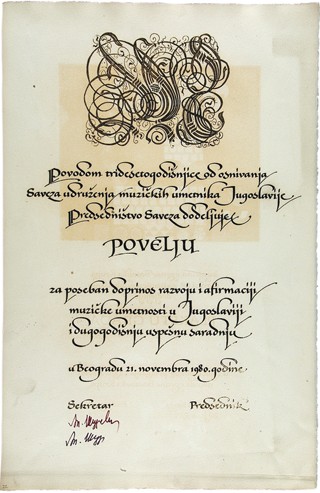 Povodom tridesetogodišnjice od osnivanja
Saveza udruženja muzičkih umetnika Jugoslavije
Predsedništvo Saveza dodeljuje
POVELJU
za poseban doprinos razvoju i afirmaciji
muzičke umetnosti u Jugoslaviji
i dugogodišnju uspešnu saradnju
u Beogradu 21. novembra 1980. godine
Sekretar Predsednik